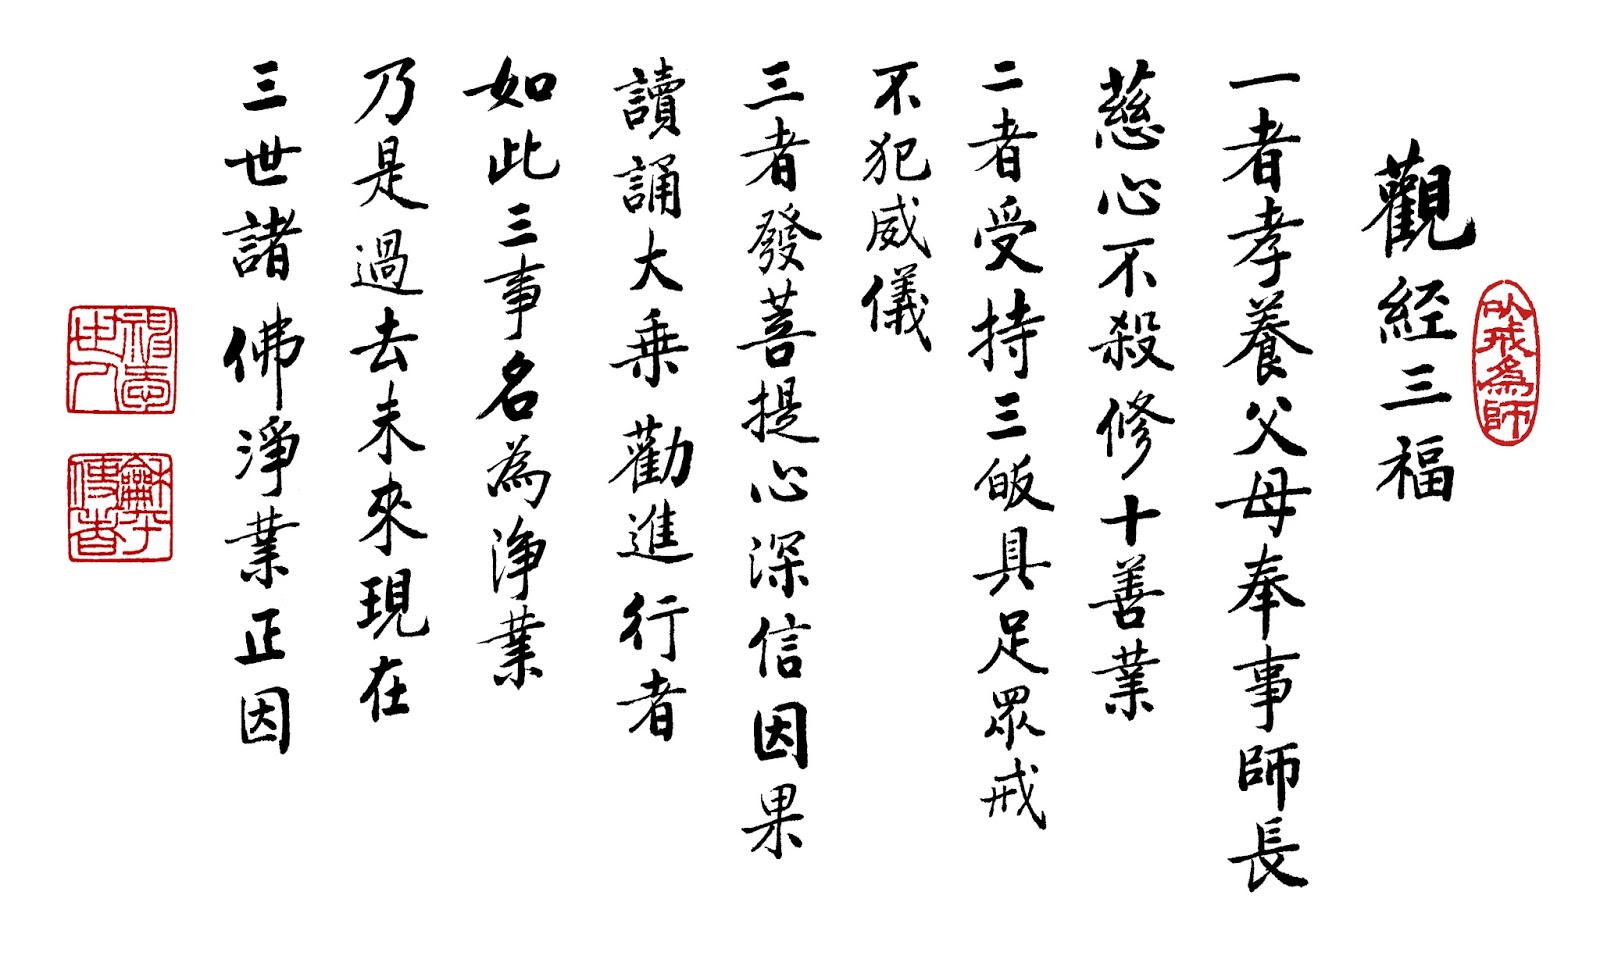 以戒為師
觀經三福
一者孝養父母奉事師長
慈心不殺修十善業
二者受持三皈具足眾戒
不犯威儀
三者發菩提心深信因果
讀誦大乘勸進行者
如此三事名為淨業
乃是過去未來現在
三世諸佛淨業正因